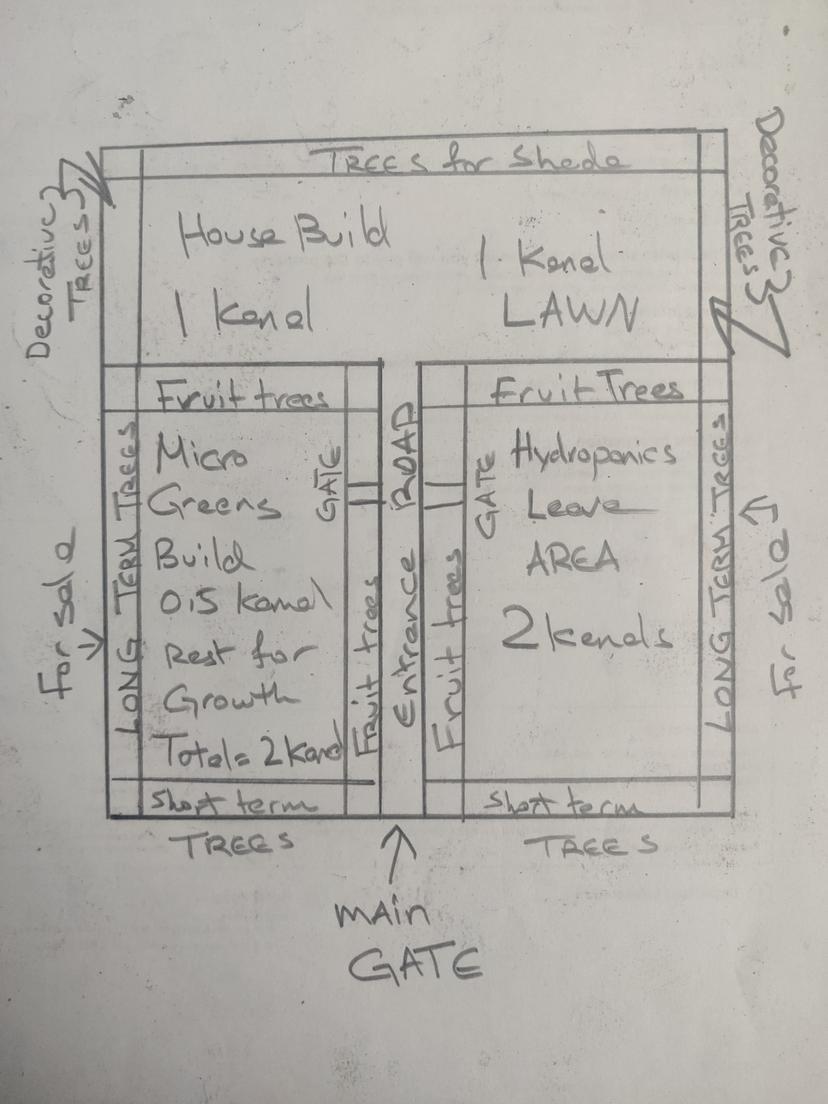 TREES for Shede
Decorative
TREES
Decorative
TREES
House Build
1 Kenel
1 Kenel
LAWN
Fruit trees
Fruit Trees
LONG TERM TREES
For Sale
Micro
Greens
Build
0.5 Kamel
Rest for
Growth
Total = 2 Kanel
GATE
Fruit trees
Entrance ROAD
Fruit trees
GATE
Hydroponics
Leave
AREA
2 kenels
LONG TERM TREES
For Sale
Short term
TREES
Short term
TREES
MAin
GATE